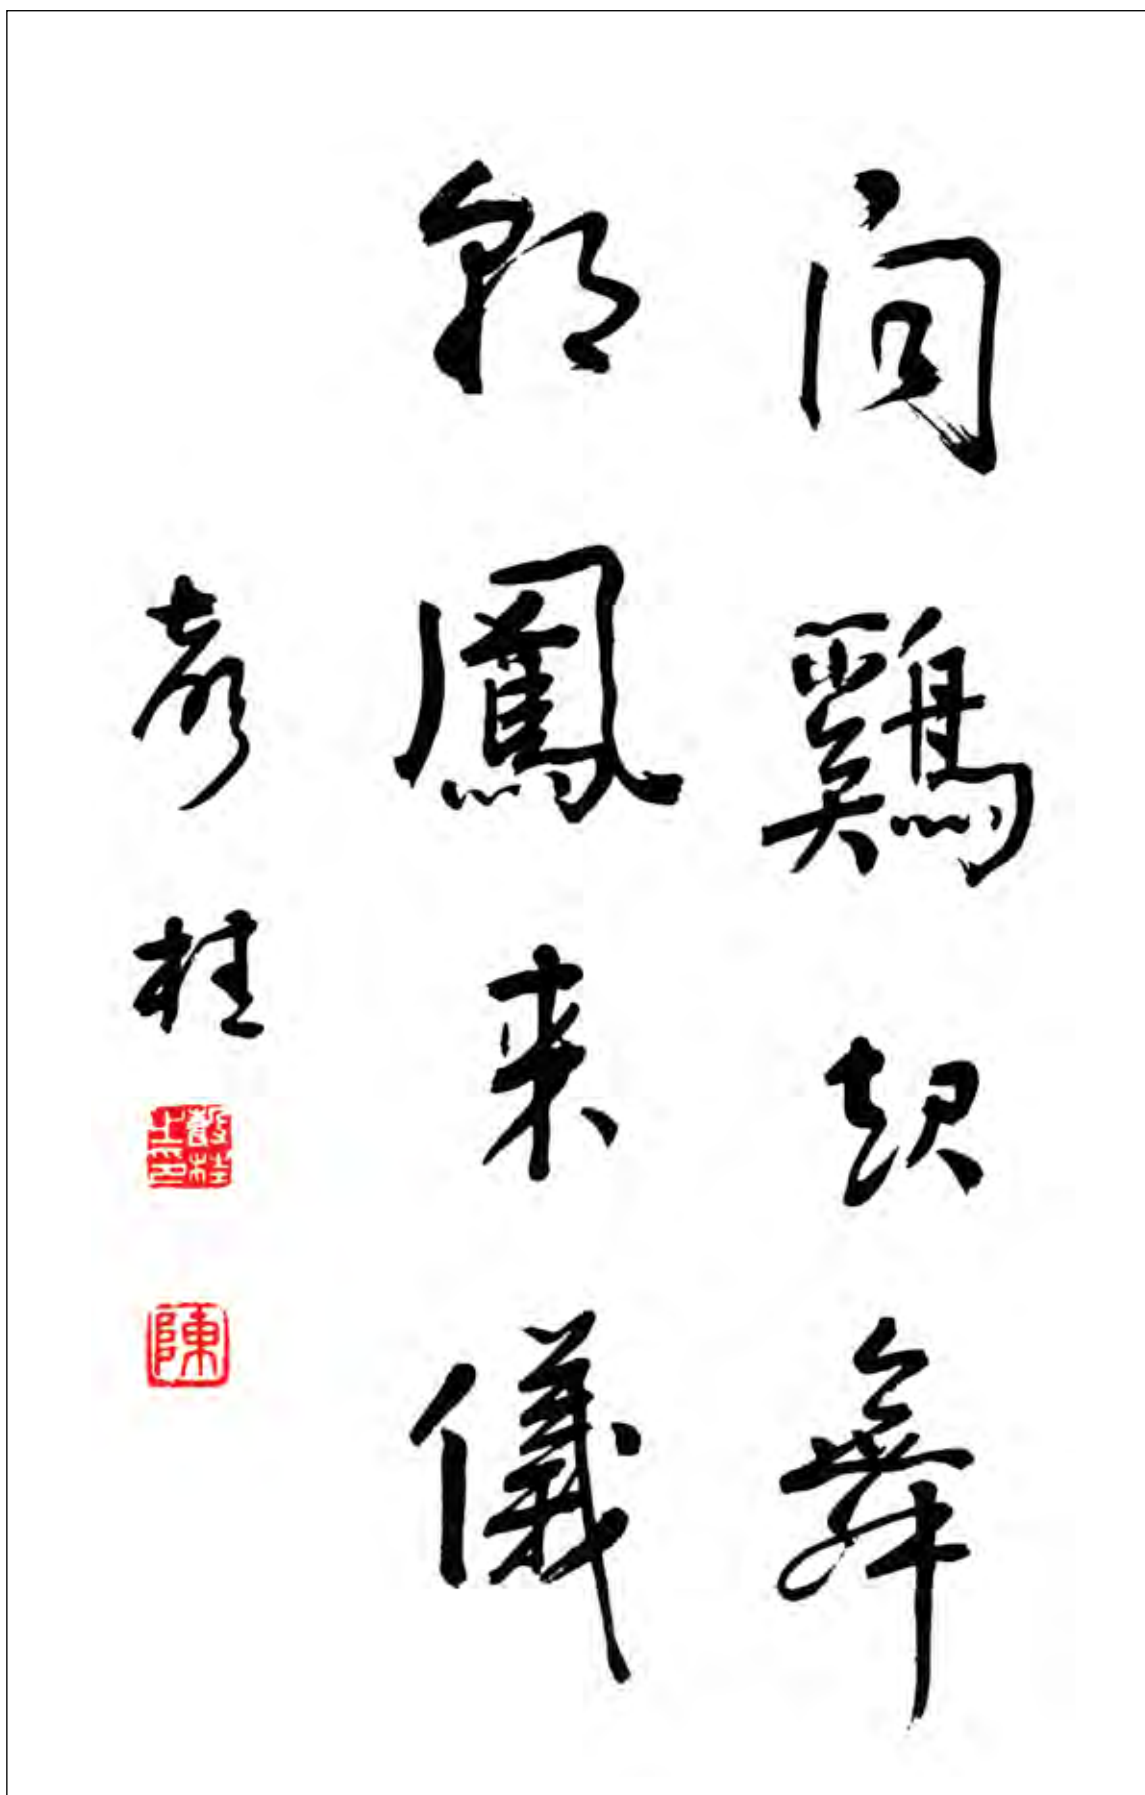 聞鷄起舞
朝鳳来儀
桂
陳